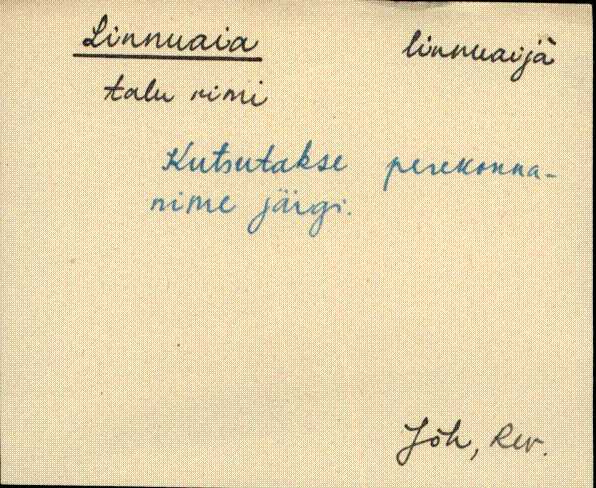 Linnuaia linnuaijà
talu nimi
Kutsutakse perekonna-
nime järgi.
Jõh, Rev.